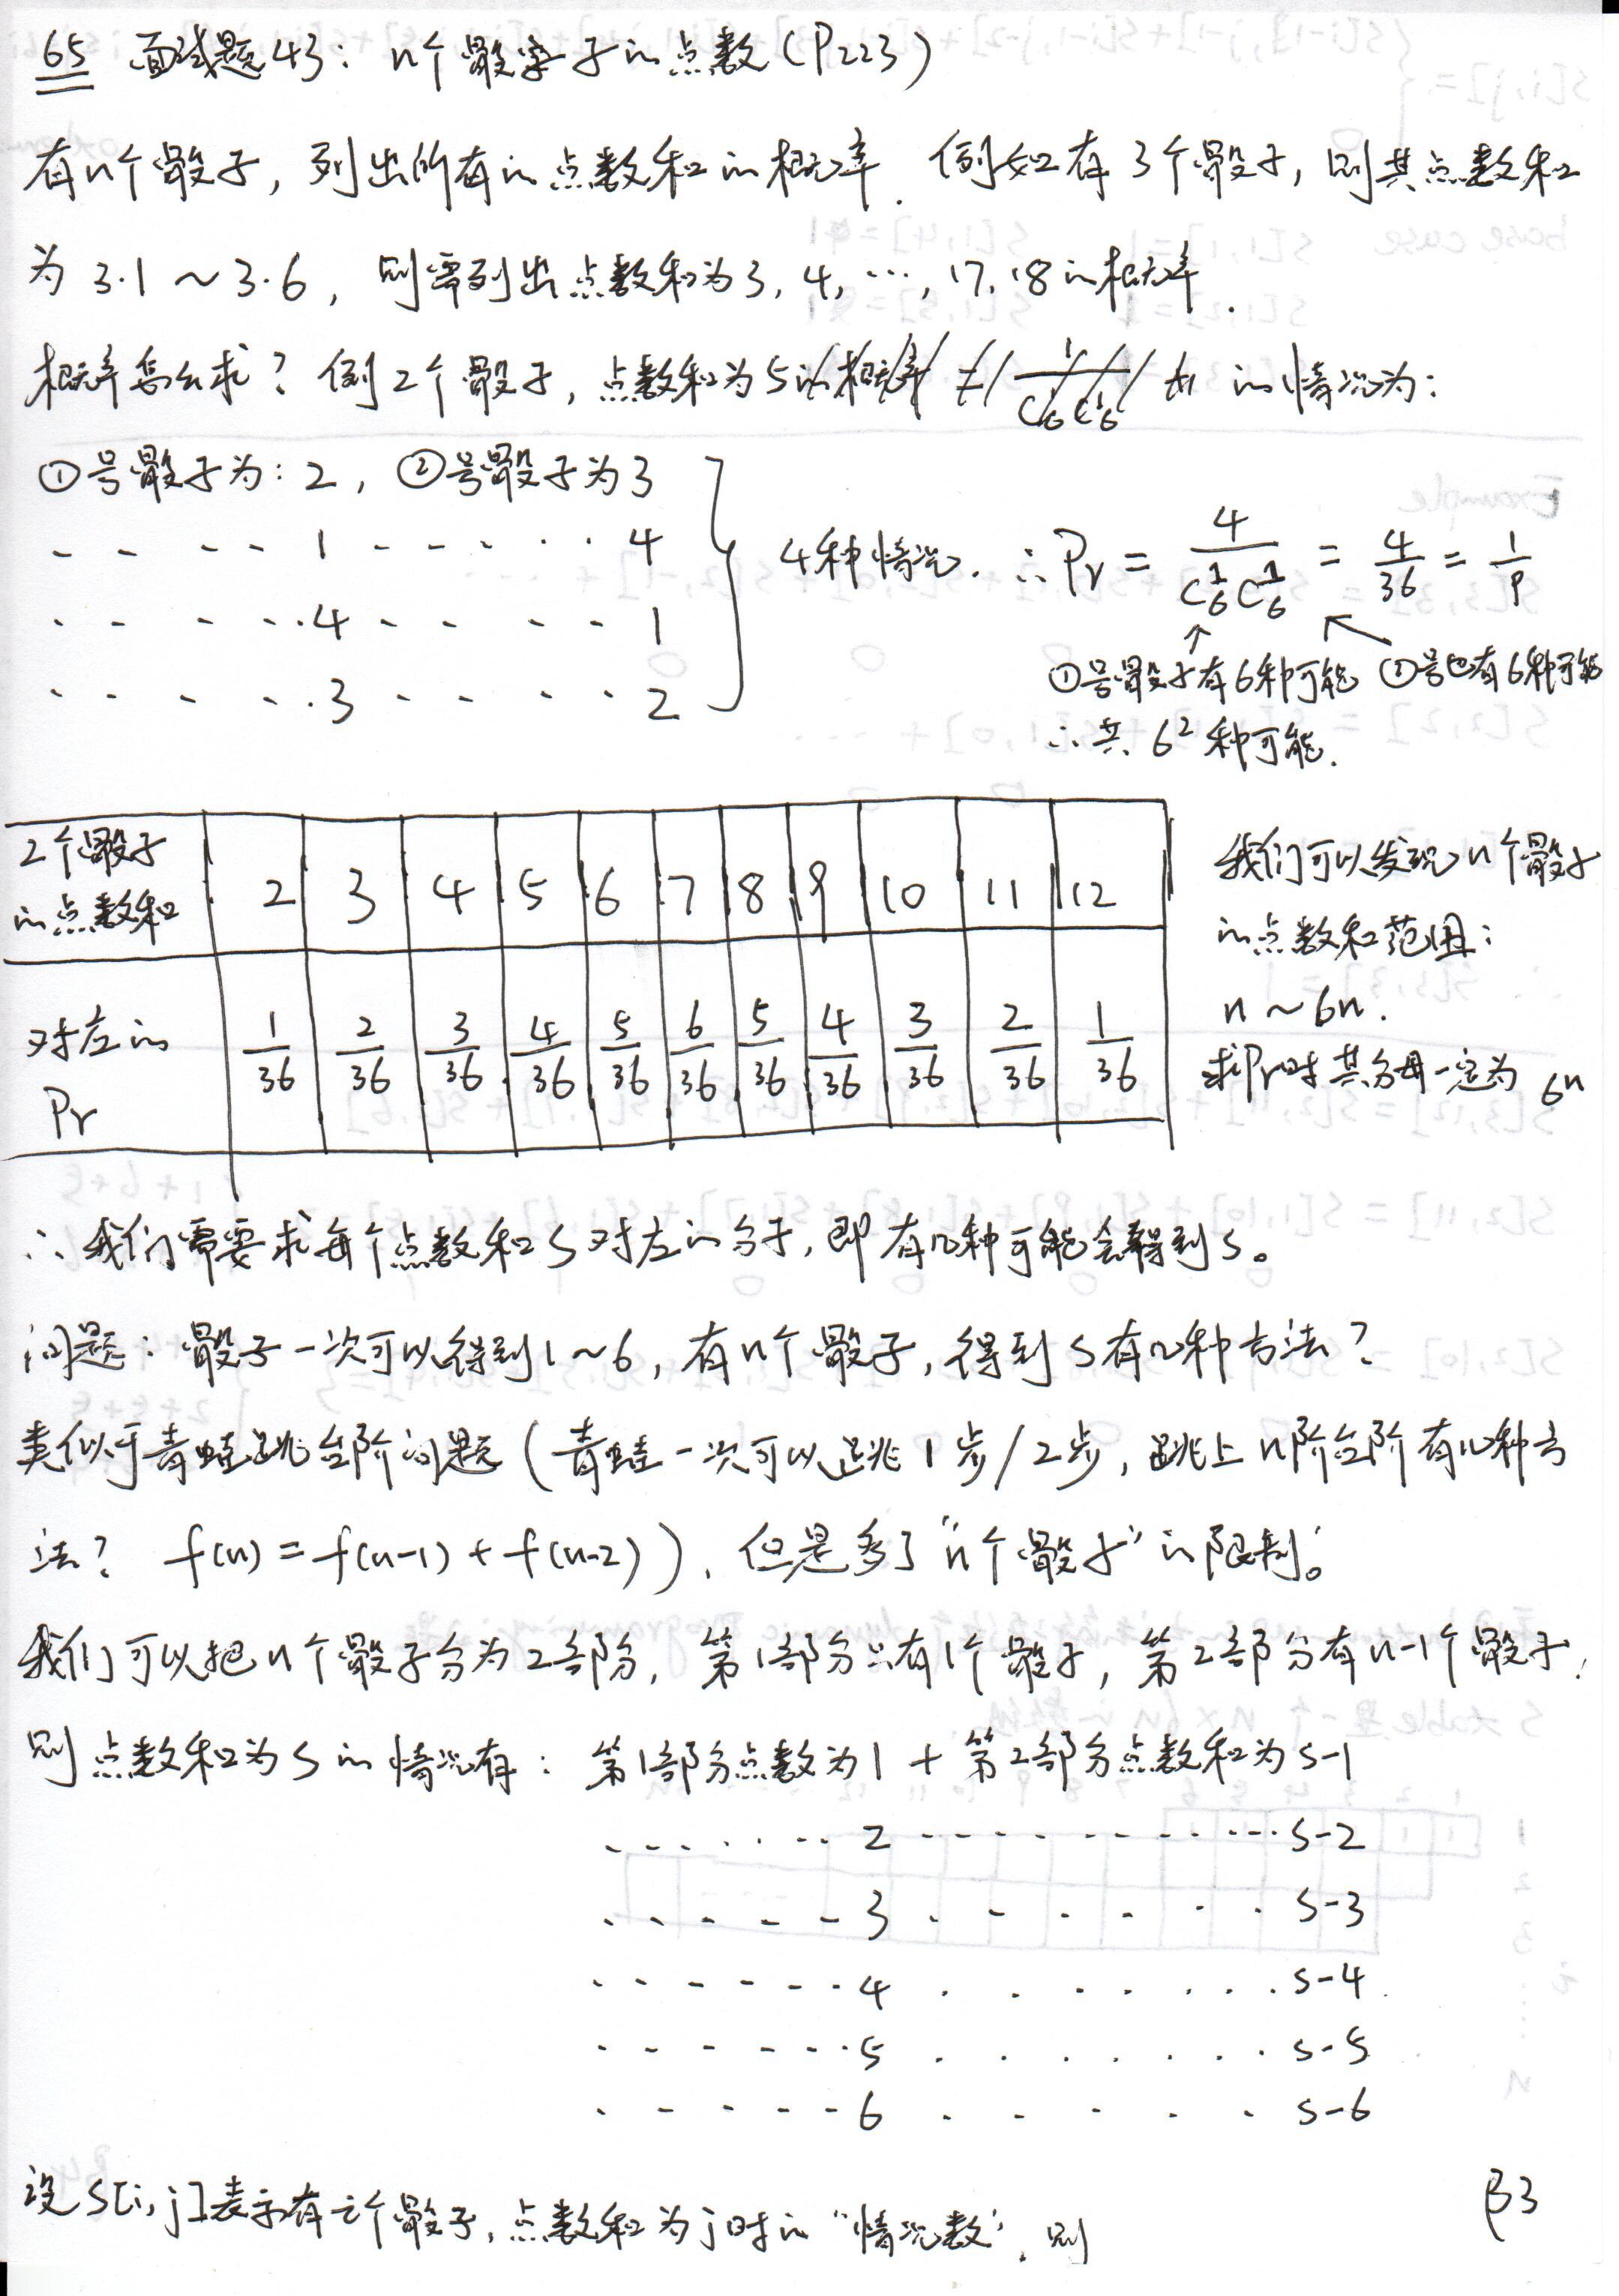 65 面试题43：n个骰子的点数(P223)
有n个骰子，列出所有的点数和的概率．例如有3个骰子，则其点数和
为3·1～3·6，则需列出点数和为3，4，…，17，18的概率．
概率怎么求？例2个骰子，点数和为5的情况为：
①号骰子为：2，②号骰子为3
- - - - 1 - - - - - 4
- - - - 4 - - - - - 1
- - - - 3 - - - - - 2
4种情况．∴Pr = 4/(C₆¹C₆¹) = 4/36 = 1/9
↑ ↖
①号骰子有6种可能 ②号也有6种可能
∴共6²种可能．
2个骰子的点数和 | 2 | 3 | 4 | 5 | 6 | 7 | 8 | 9 | 10 | 11 | 12
对应的Pr | 1/36 | 2/36 | 3/36 | 4/36 | 5/36 | 6/36 | 5/36 | 4/36 | 3/36 | 2/36 | 1/36
我们可以发现n个骰子
的点数和范围：
n～6n．
求Pr时其分母一定为6ⁿ
∴我们需要求每个点数和S对应的分子，即有几种可能会得到S。
问题：骰子一次可以得到1～6，有n个骰子，得到S有几种方法？
类似于青蛙跳台阶问题（青蛙一次可以跳1步/2步，跳上n阶台阶有几种方
法？ f(n)=f(n-1)+f(n-2)），但是多了“n个骰子”的限制。
我们可以把n个骰子分为2部分，第1部分只有1个骰子，第2部分有n-1个骰子，
则点数和为S的情况有：第1部分点数为1 + 第2部分点数和为S-1
- - - - - - 2 - - - - - - - - S-2
- - - - - 3 - - - - - - S-3
- - - - - - 4 - - - - - - - S-4
- - - - - - 5 - - - - - - - S-5
- - - - - 6 - - - - - - S-6
设S[i,j]表示有i个骰子，点数和为j时的“情况数”，则
β3